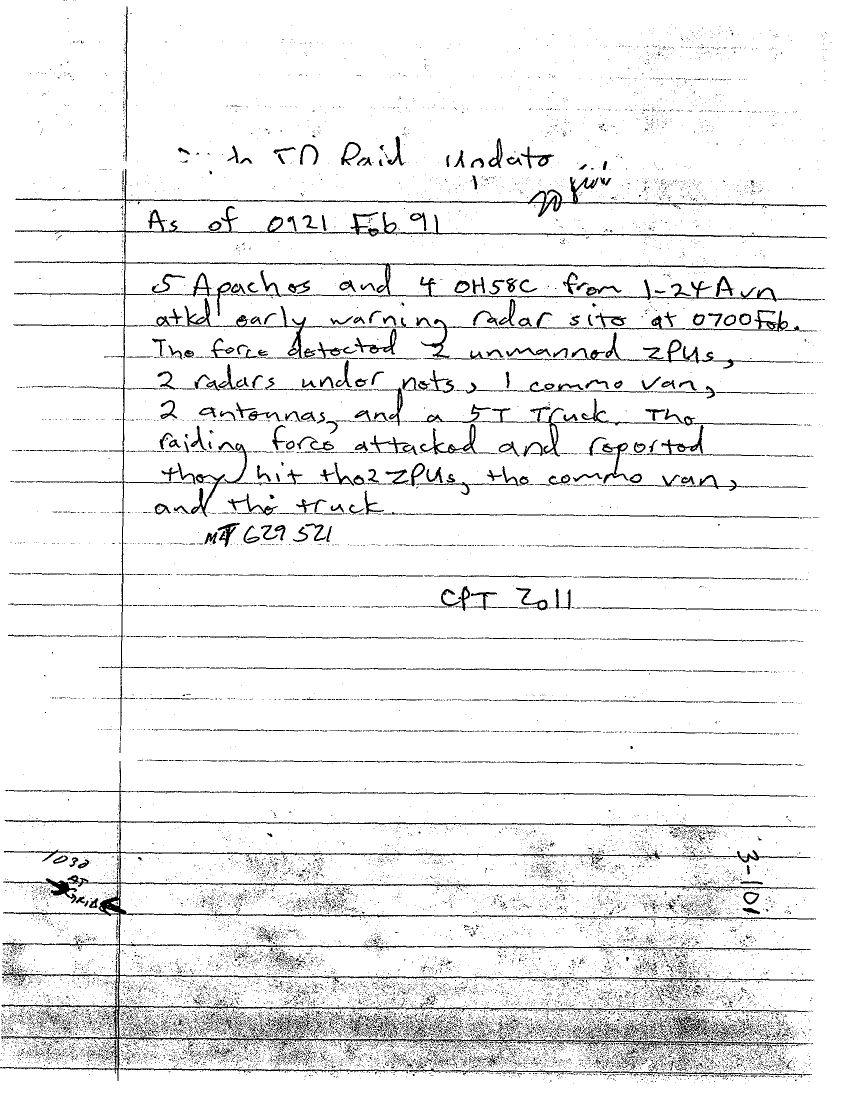 ID Raid Update
20
As of 0921 Feb 91
5 Apaches and 4 OH58C from 1-24 Avn
atkd early warning radar site at 0700 Feb.
The force detected 2 unmanned ZPUs,
2 radars under nets, 1 commo van,
2 antennas, and a 5T Truck. The
raiding force attacked and reported
they hit the 2 ZPUs, the commo van,
and the truck.
629 521
CPT Zoll
1030
AT
GRID
3-101